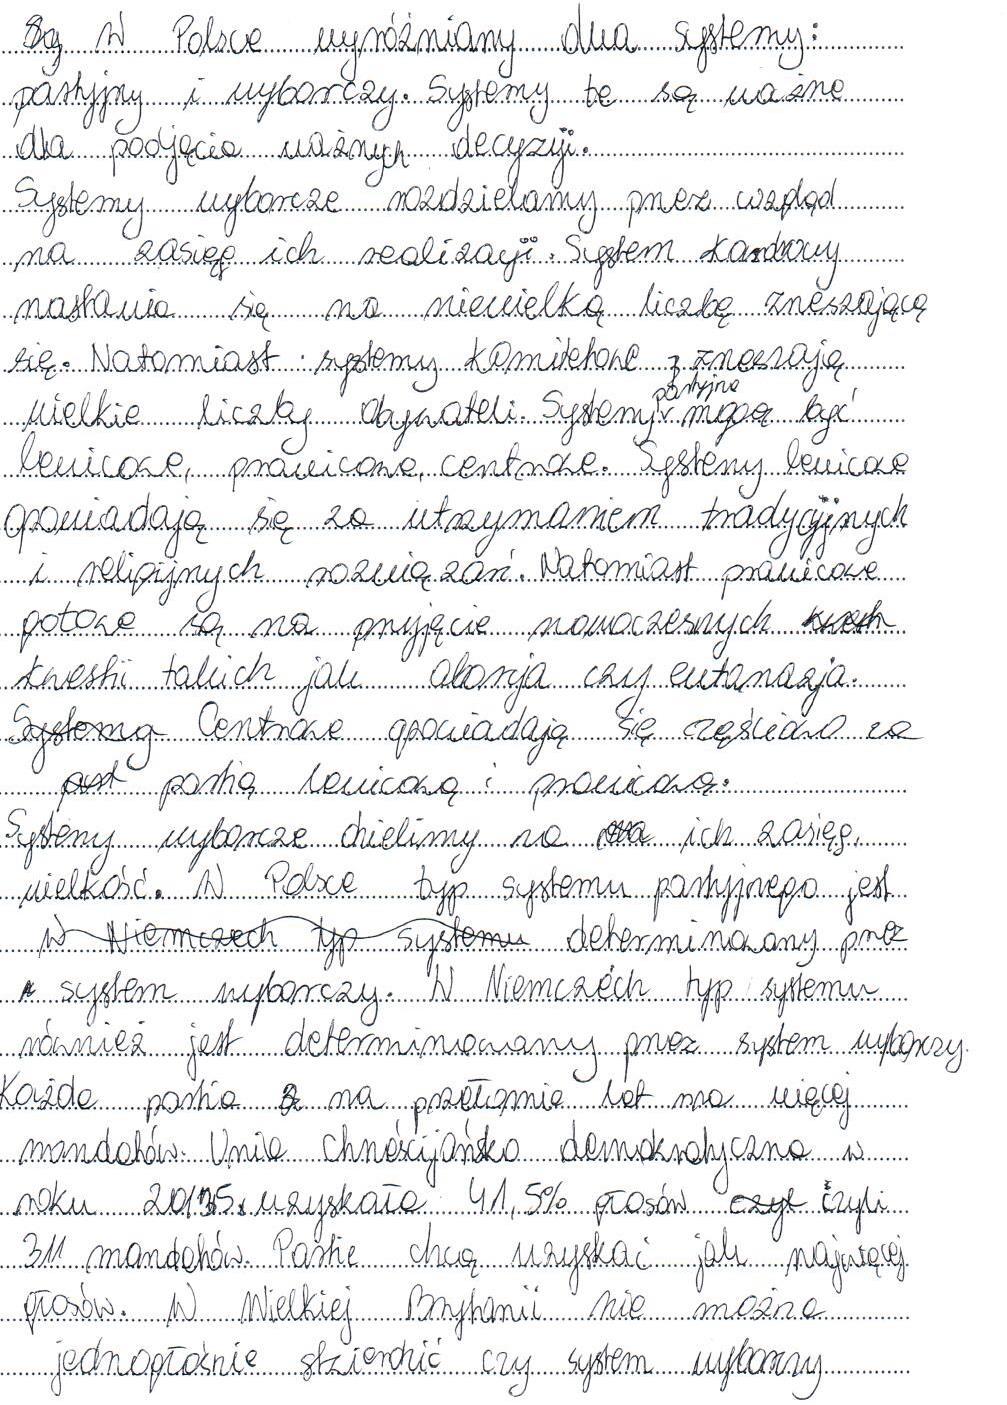 W Polsce wyróżniamy dwa systemy:
partyjny i wyborczy. Systemy te są ważne
dla podjęcia ważnych decyzji.
Systemy wyborcze rozdzielamy przez wzgląd
na zasięg ich realizacji. System kadrowy
nastawia się na niewielką liczbę zrzeszającą
się. Natomiast systemy komitetowe zrzeszają
wielkie liczby obywateli. Systemy partyjne mogą być
lewicowe, prawicowe, centrowe. Systemy lewicowe
opowiadają się za utrzymaniem tradycyjnych
i religijnych rozwiązań. Natomiast prawicowe
gotowe są na przyjęcie nowoczesnych
kwestii takich jak aborcja czy eutanazja.
Systemy Centrowe opowiadają się częściowo za
partią lewicową i prawicową.
Systemy wyborcze dzielimy na ich zasięg,
wielkość. W Polsce typ systemu partyjnego jest
W Niemczech typ systemu determinowany przez
system wyborczy. W Niemczech typ systemu
również jest determinowany przez system wyborczy.
Każda partia na przełomie lat ma więcej
mandatów. Unia Chrześcijańsko demokratyczna w
roku 2013 uzyskała 41,5% głosów czyli
311 mandatów. Partie chcą uzyskać jak najwięcej
głosów. W Wielkiej Brytanii nie można
jednogłośnie stwierdzić czy system wyborczy